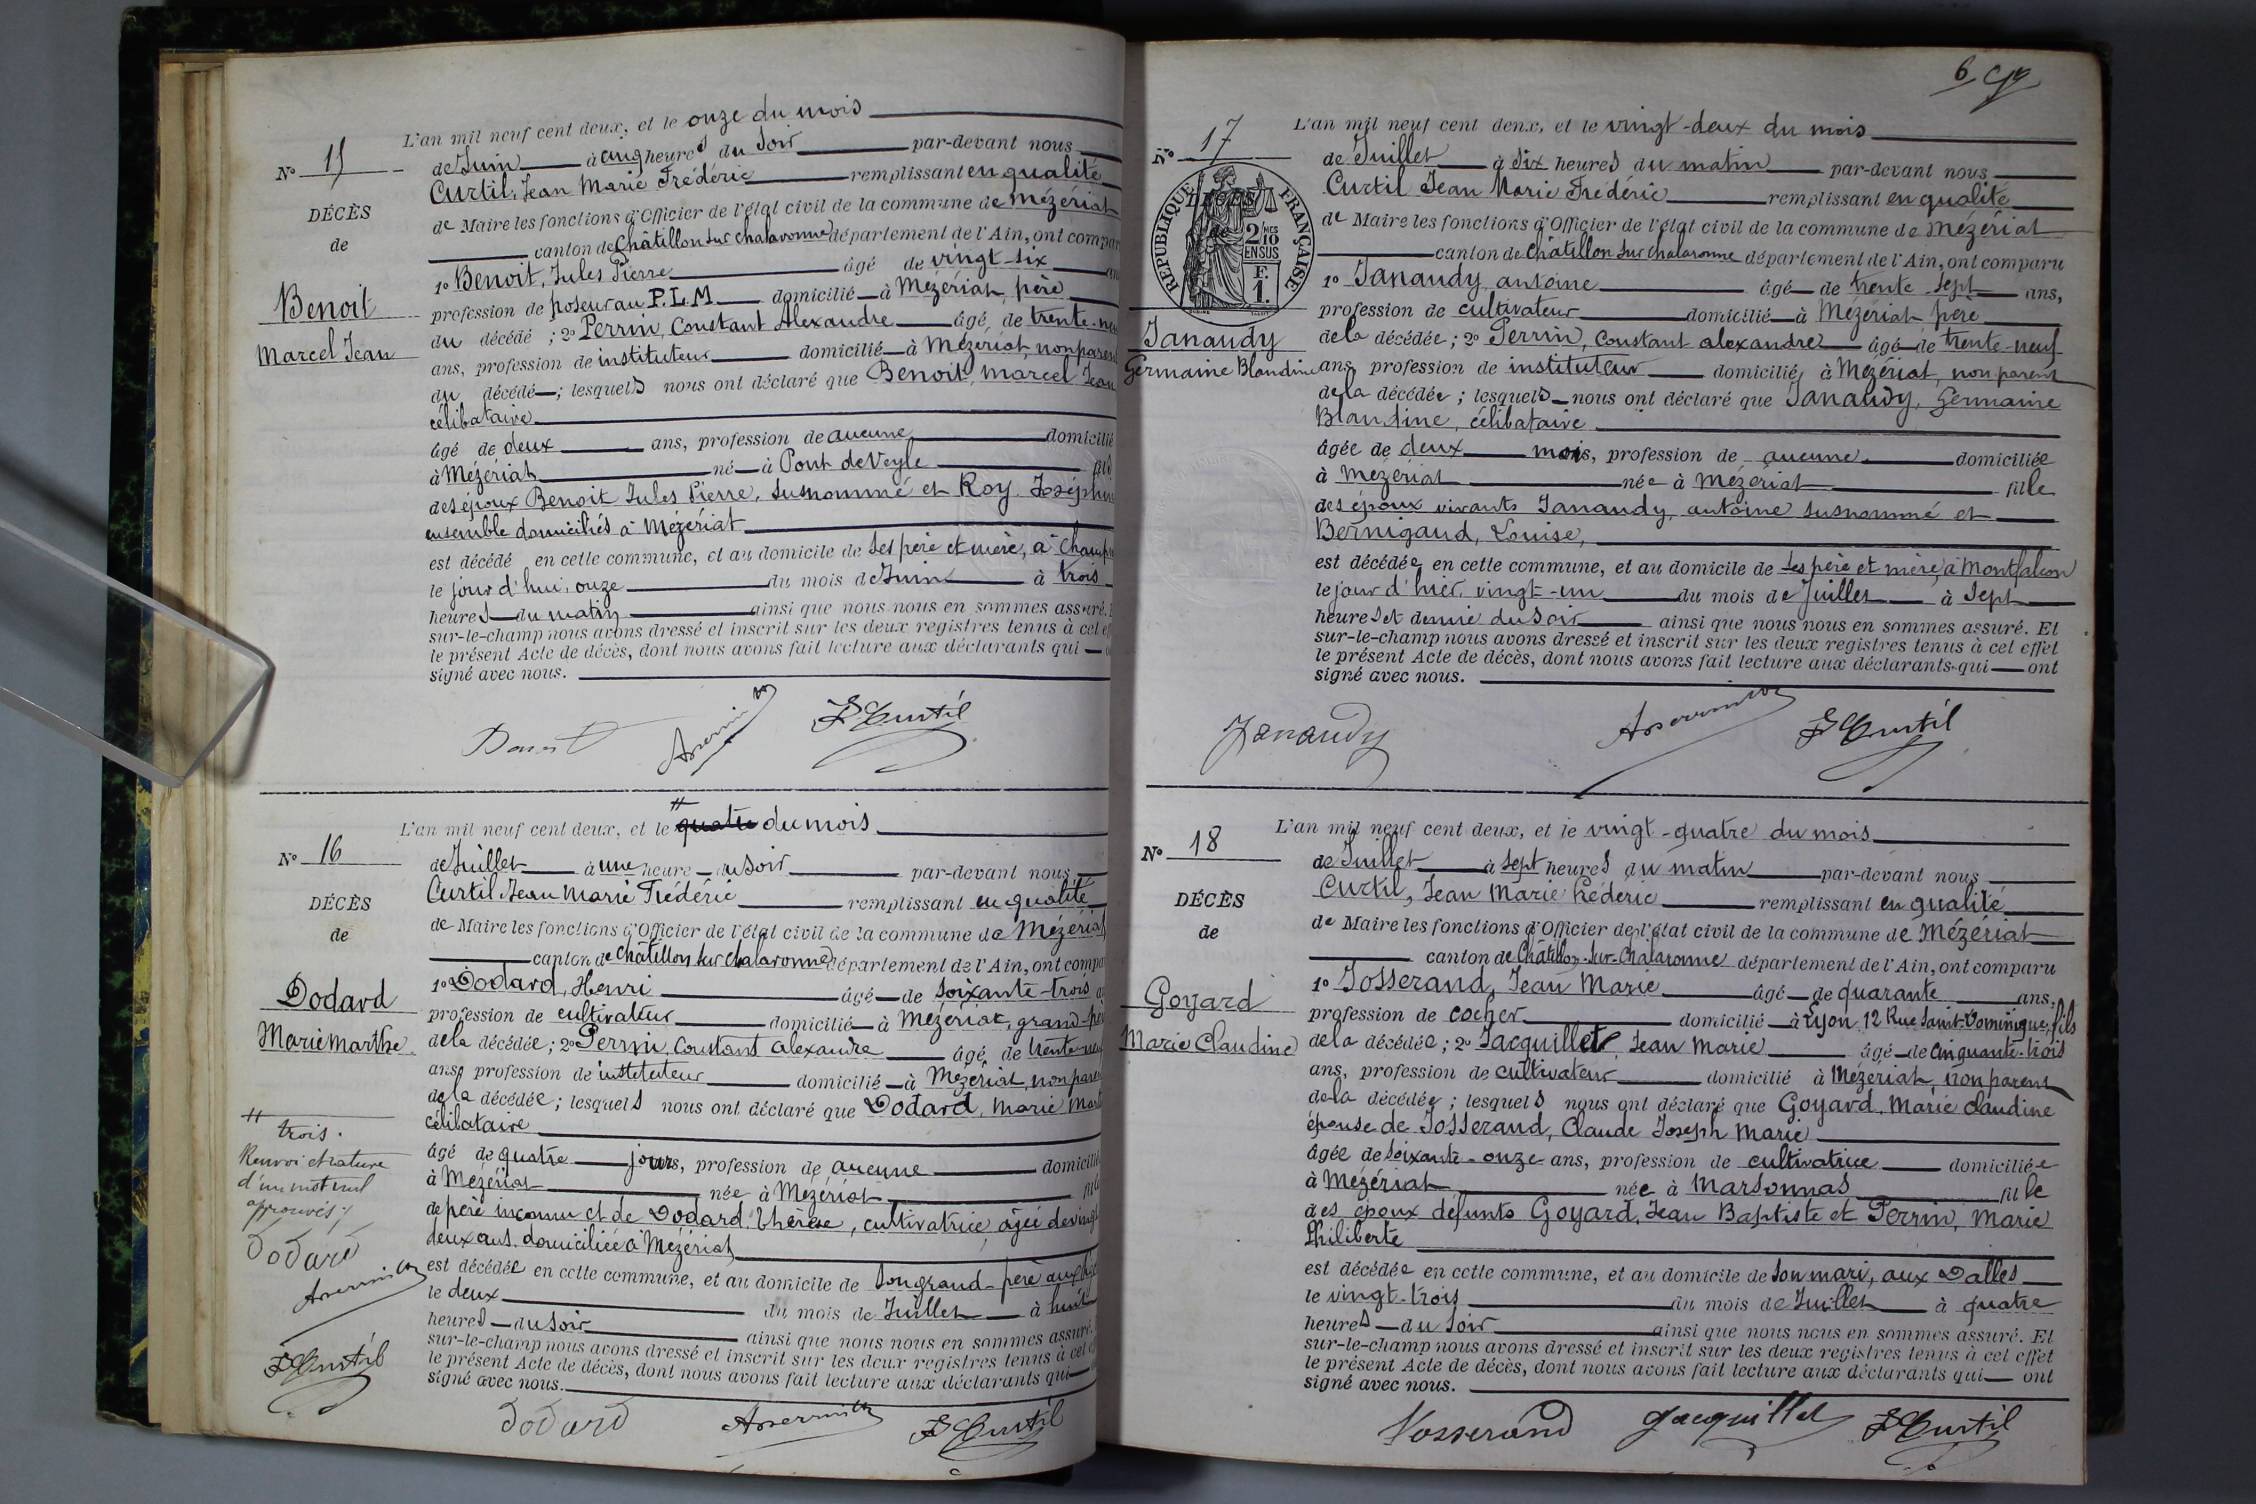 L'an mil neuf cent deux, et le onze du mois
N° 15
de Juin à cinq heures du Soir par-devant nous
Curtil, Jean Marie Frédéric remplissant en qualité
DÉCÈS
de Maire les fonctions d'Officier de l'état civil de la commune de Mézériat
de
canton de Châtillon sur Chalaronne département de l'Ain, ont compar
1° Benoit, Jules Pierre âgé de vingt-six an
Benoit
profession de poseur au P.L.M domicilié à Mézériat, père
du décédé ; 2° Perrin, Constant Alexandre âgé de trente-neu
Marcel Jean
ans, profession de instituteur domicilié à Mézériat, non parent
du décédé ; lesquels nous ont déclaré que Benoit, Marcel Jean
célibataire
âgé de deux ans, profession de aucune domicilié
à Mézériat né à Pont de Veyle fils
des époux Benoit Jules Pierre, susnommé et Roy Joséphine
ensemble domiciliés à Mézériat
est décédé en cette commune, et au domicile de ses père et mère, à
le jour d'hui, onze du mois de Juin à trois
heures du matin ainsi que nous nous en sommes assuré.
sur-le-champ nous avons dressé et inscrit sur les deux registres tenus à cet ef
le présent Acte de décès, dont nous avons fait lecture aux déclarants qui
signé avec nous.
Benoit JCurtil
L'an mil neuf cent deux, et le # quatre du mois
N° 16
de Juillet à une heure du Soir par-devant nous
Curtil Jean Marie Frédéric remplissant en qualité
DÉCÈS
de Maire les fonctions d'Officier de l'état civil de la commune de Mézériat
de
canton de Châtillon sur Chalaronne département de l'Ain, ont compa
1° Dodard, Henri âgé de soixante-trois
Dodard
profession de cultivateur domicilié à Mézériat, grand-père
Marie Marthe
de la décédée ; 2° Perrin, Constant Alexandre âgé de trente-neu
ans, profession de instituteur domicilié à Mézériat, non paren
de la décédée ; lesquels nous ont déclaré que Dodard, Marie Mart
célibataire
# trois.
Renvoi et rature
d'un mot nul
approuvés ./.
Dodard
JCurtil
âgé de quatre jours, profession de aucune domicilié
à Mézériat née à Mézériat fille
de père inconnu et de Dodard Thérèse, cultivatrice, âgée de vingt
deux ans, domiciliée à Mézériat
est décédée en cette commune, et au domicile de son grand-père
le deux du mois de Juillet à huit
heures du Soir ainsi que nous nous en sommes assuré.
sur-le-champ nous avons dressé et inscrit sur les deux registres tenus à cet
le présent Acte de décès, dont nous avons fait lecture aux déclarants qui
signé avec nous.
Dodard JCurtil
6
L'an mil neuf cent deux, et le vingt-deux du mois
N° 17
de Juillet à six heures du matin par-devant nous
Curtil Jean Marie Frédéric remplissant en qualité
DÉCÈS
RÉPUBLIQUE FRANÇAISE
2/10 MES
EN SUS
F.
1.
de Maire les fonctions d'Officier de l'état civil de la commune de Mézériat
canton de Châtillon sur Chalaronne département de l'Ain, ont comparu
1° Janaudy, antoine âgé de trente-sept ans,
profession de cultivateur domicilié à Mézériat père
Janaudy
de la décédée ; 2° Perrin, Constant alexandre âgé de trente-neuf
Germaine Blandine
ans, profession de instituteur domicilié, à Mézériat, non parent
de la décédée ; lesquels nous ont déclaré que Janaudy, Germaine
Blandine, célibataire
âgée de deux mois, profession de aucune domiciliée
à Mézériat née à Mézériat fille
des époux vivants Janaudy, antoine susnommé et
Bernigaud, Louise,
est décédée en cette commune, et au domicile de ses père et mère, à Montfalcon
le jour d'hier, vingt-un du mois de Juillet à sept
heures et demie du Soir ainsi que nous nous en sommes assuré. Et
sur-le-champ nous avons dressé et inscrit sur les deux registres tenus à cet effet
le présent Acte de décès, dont nous avons fait lecture aux déclarants qui ont
signé avec nous.
Janaudy JCurtil
L'an mil neuf cent deux, et le vingt-quatre du mois
N° 18
de Juillet à sept heures du matin par-devant nous
Curtil, Jean Marie Fréderic remplissant en qualité
DÉCÈS
de Maire les fonctions d'Officier de l'état civil de la commune de Mézériat
de
canton de Châtillon-sur-Chalaronne département de l'Ain, ont comparu
1° Josserand, Jean Marie âgé de quarante ans,
Goyard
profession de cocher domicilié à Lyon, 12 Rue Saint-Dominique, fils
Marie Claudine
de la décédée ; 2° Jacquillet, Jean Marie âgé de cinquante-trois
ans, profession de cultivateur domicilié à Mézériat, non parent
de la décédée ; lesquels nous ont déclaré que Goyard, Marie Claudine
épouse de Josserand, Claude Joseph Marie
âgée de soixante-onze ans, profession de cultivatrice domiciliée
à Mézériat née à Marsonnas fille
des époux défunts Goyard, Jean Baptiste et Perrin, Marie
Philiberte
est décédée en cette commune, et au domicile de son mari, aux Dalles
le vingt-trois du mois de Juillet à quatre
heures du Soir ainsi que nous nous en sommes assuré. Et
sur-le-champ nous avons dressé et inscrit sur les deux registres tenus à cet effet
le présent Acte de décès, dont nous avons fait lecture aux déclarants qui ont
signé avec nous.
Josserand Jacquillet JCurtil